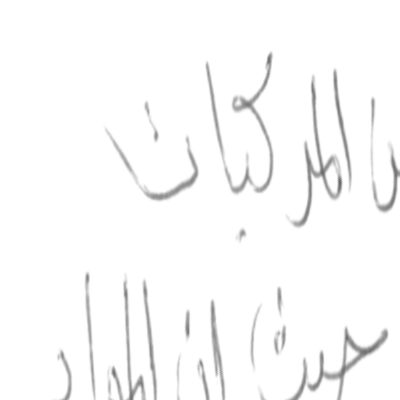 المركبات
حيث ان المواد